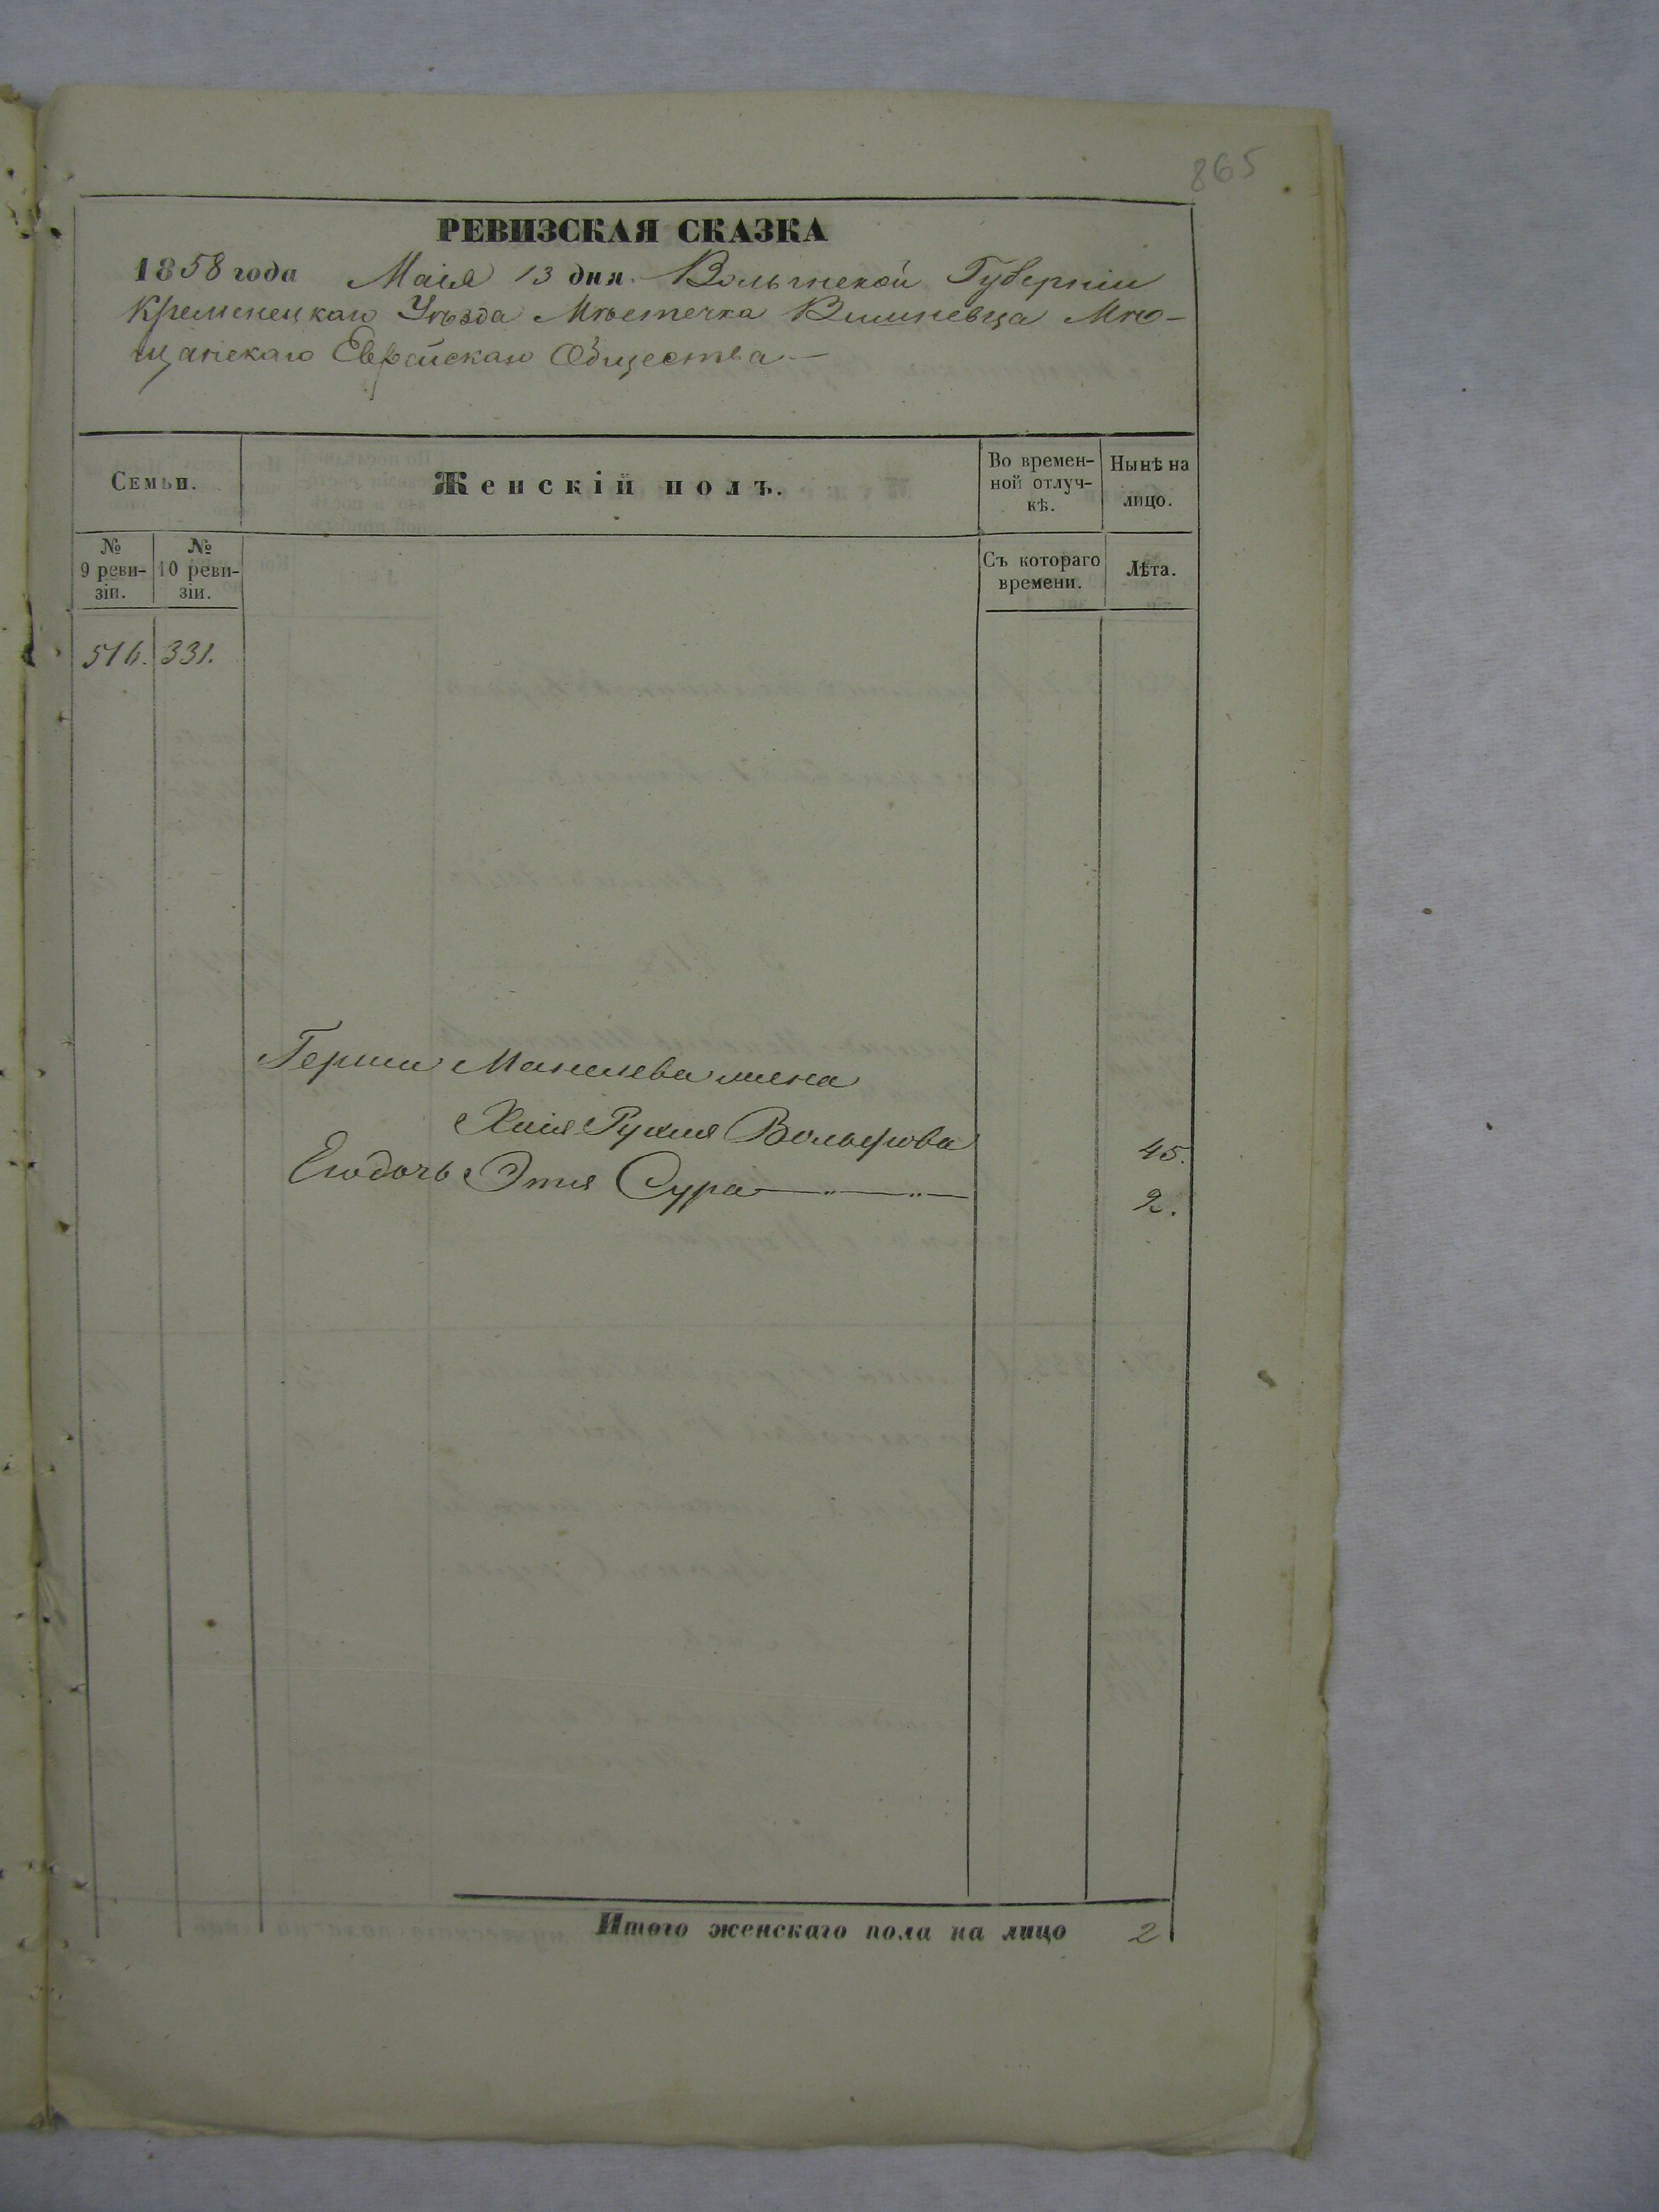 865
РЕВИЗСКАЯ СКАЗКА
1858 года Маія 13 дня. Волынской Губерніи
Кременецкаго Уѣзда Мѣстечка Вишневца Мѣ-
щанскаго Еврейскаго Общества —
Семьи.
Женскій полъ.
Во времен-
ной отлуч-
кѣ.
Нынѣ на
лицо.
№
9 реви-
зіи.
№
10 реви-
зіи.
Съ котораго
времени.
Лѣта.
516. 331.
Герша Манелева жена
Хаія Рухля Вольфова 45.
Его дочь Этля Сура 2.
Итого женскаго пола на лицо 2